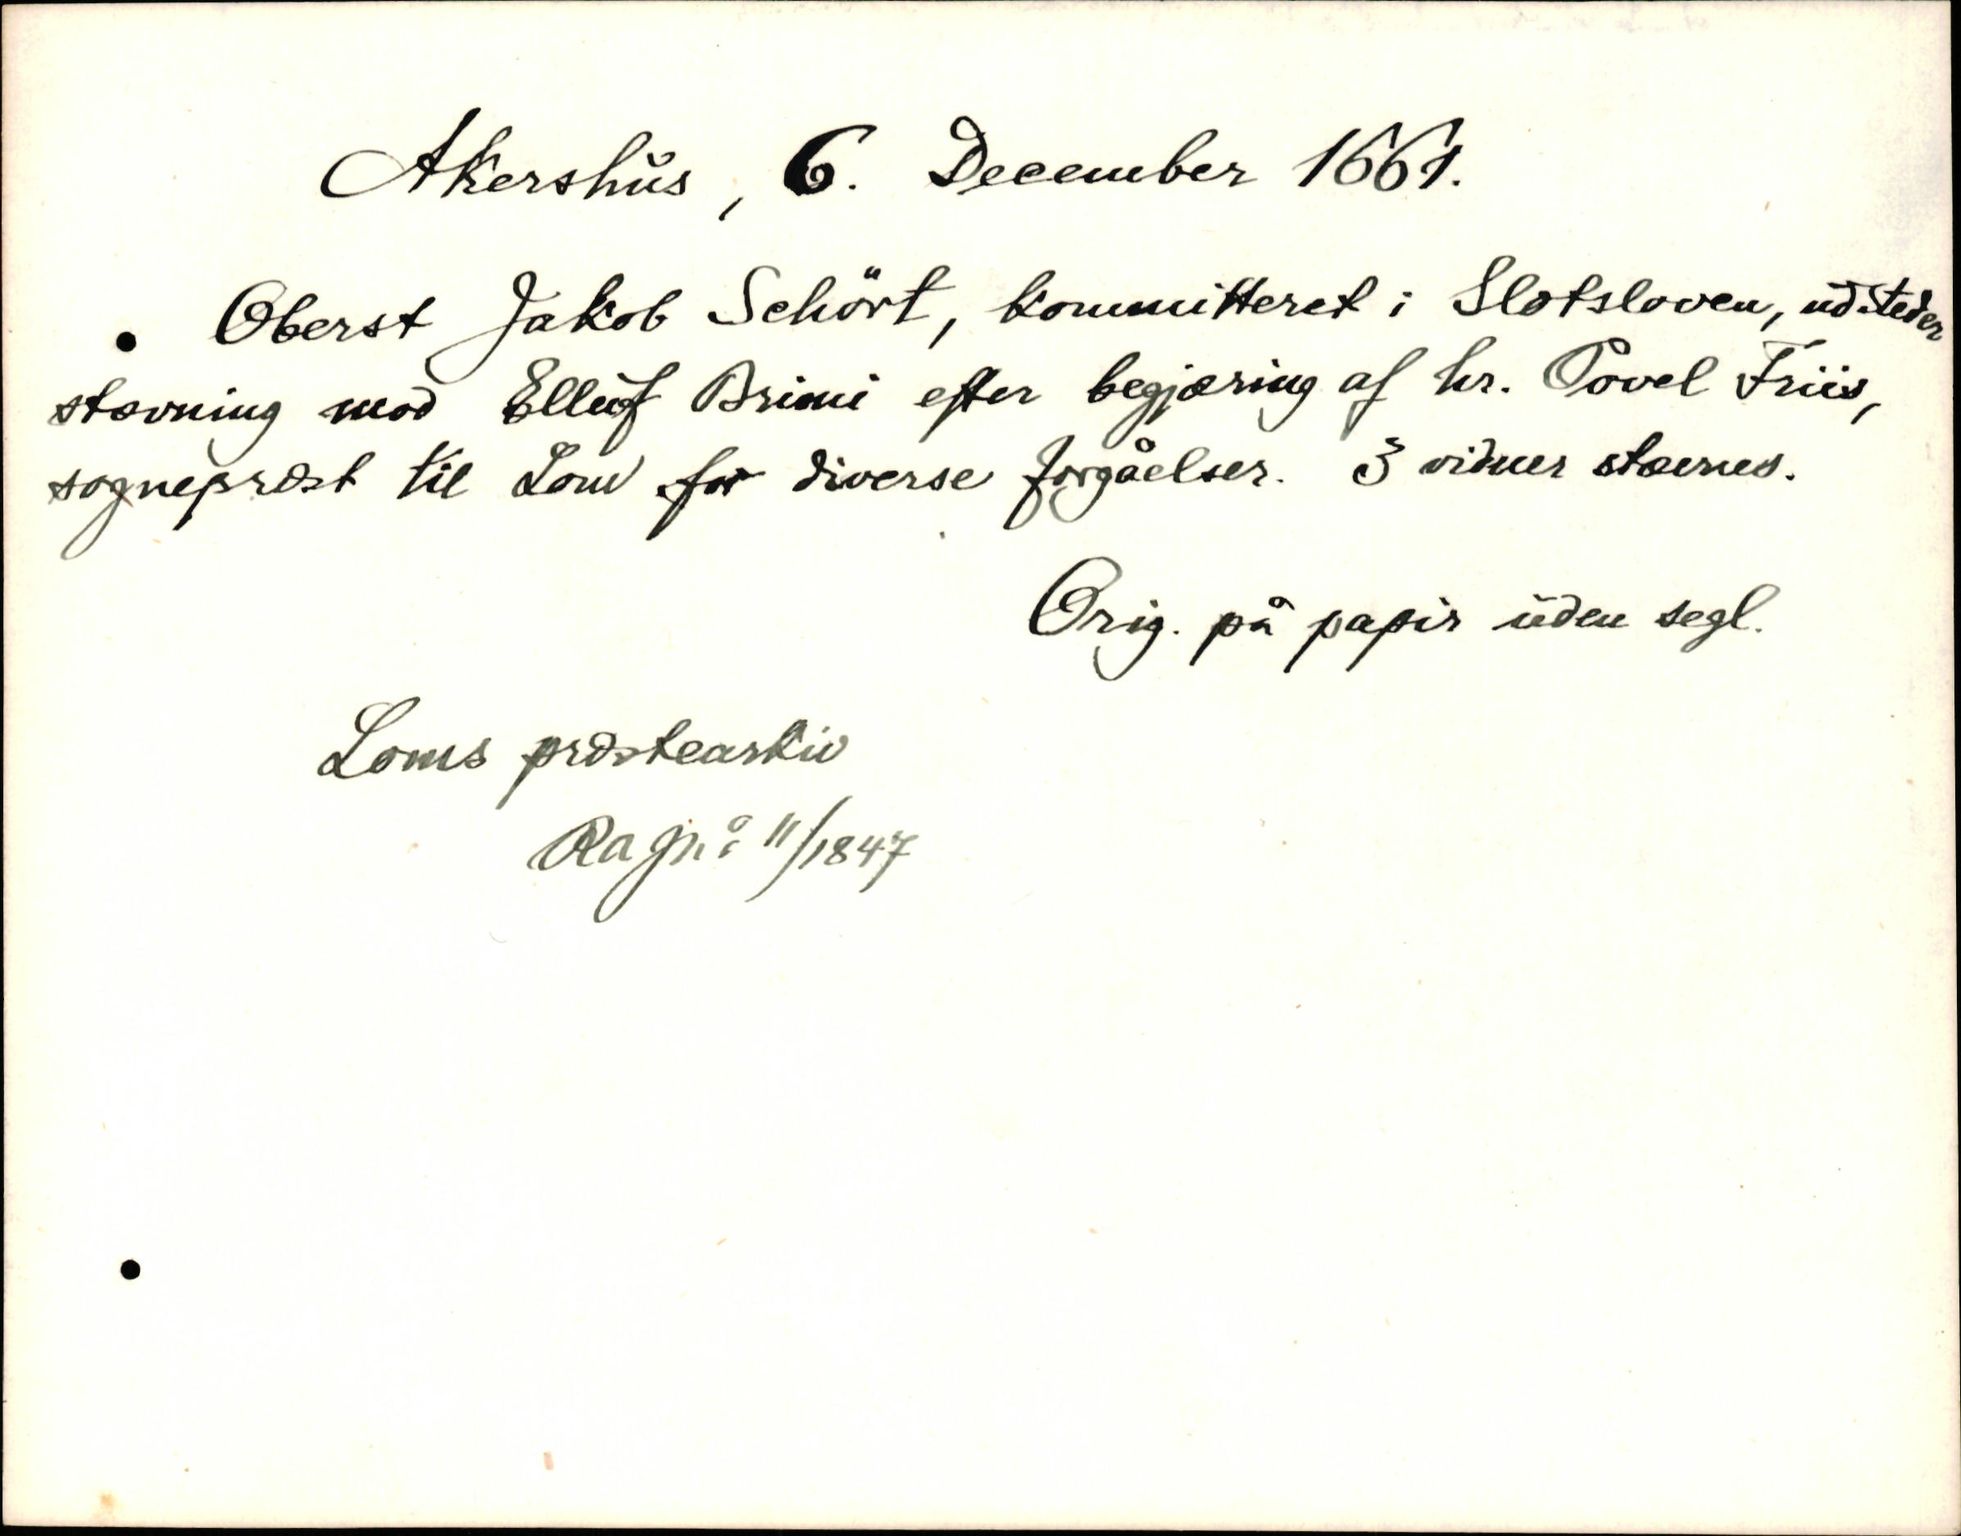 Akershus, 6. December 1661.
Oberst Jakob Schört, kommitteret i Slotsloven, udsteder
stævning mod Elluf Brimi efter begjæring af hr. Povel Friis,
sogneprest til Lom for diverse forgåelser. 3 vidner stævnes.
Orig. på papir uden segl.
Loms prestearkiv
Ra jn: 11/1847